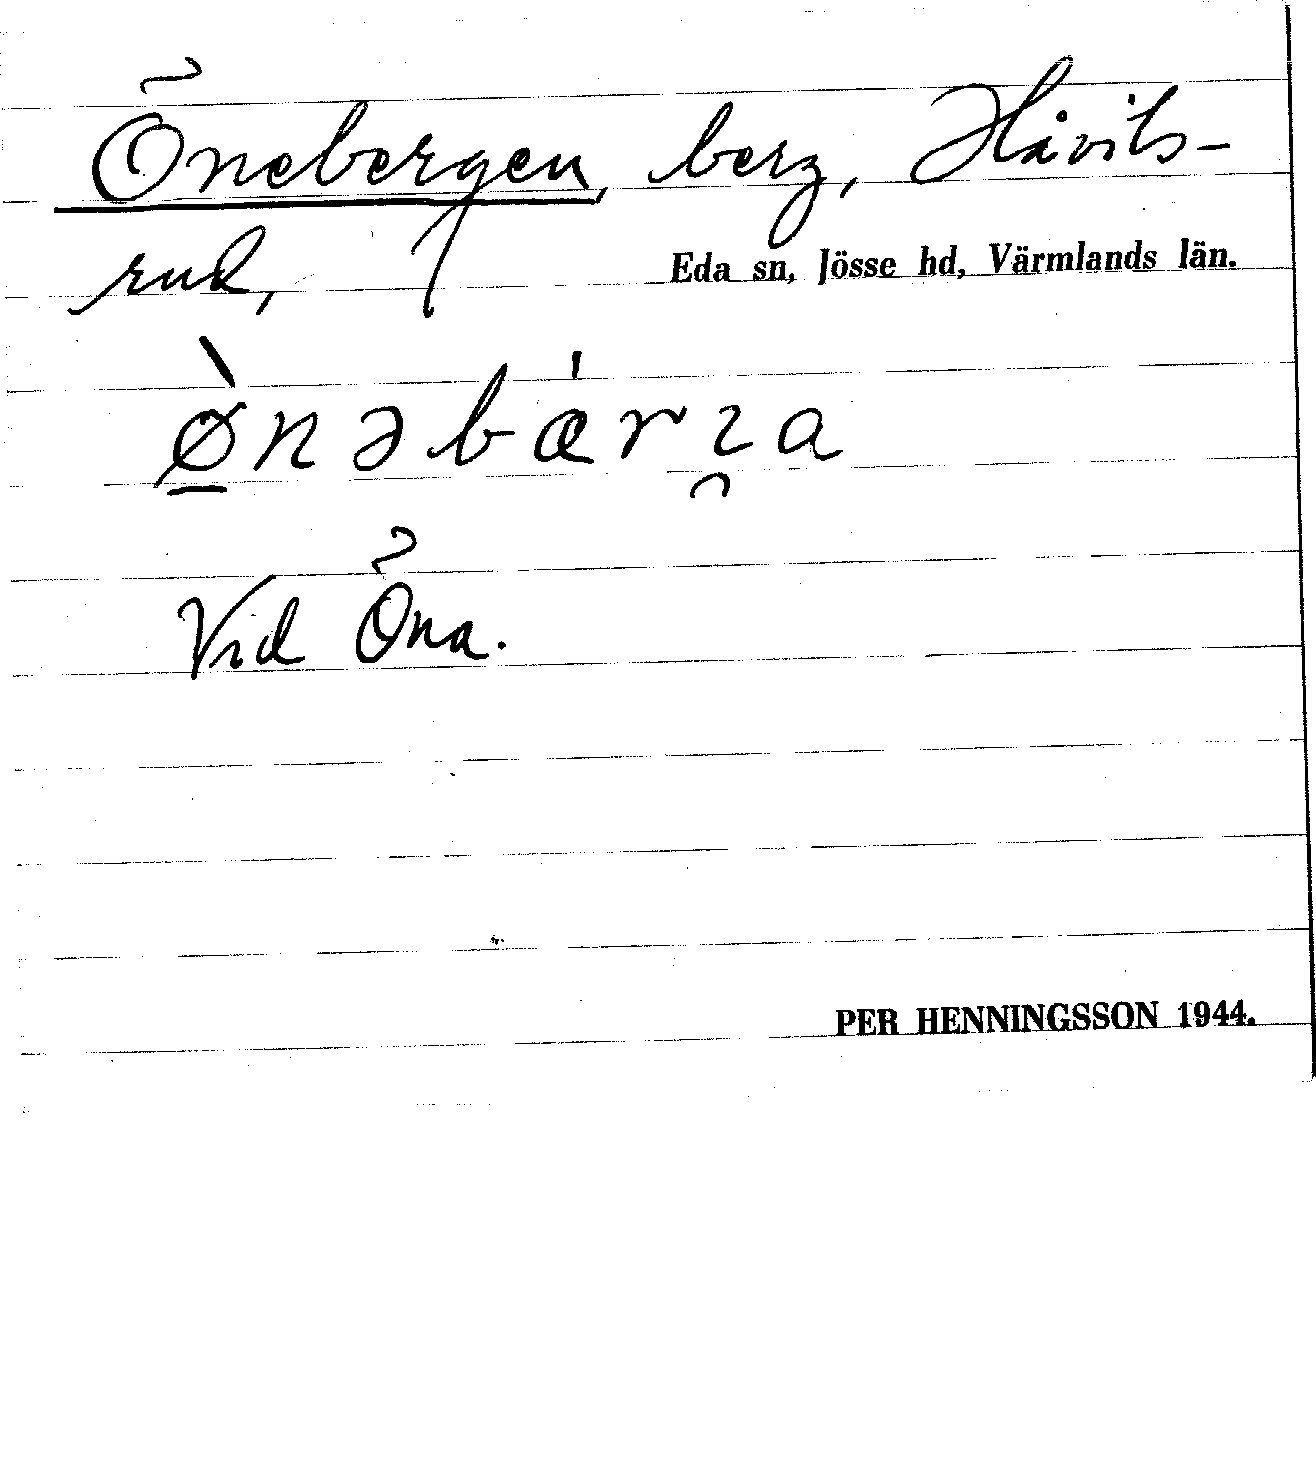 Önebergen, berg, Håvits-
rud,
Eda sn, Jösse hd, Värmlands län.
ø̠̀nəbα̍rɿ̯a
Vid Öna.
PER HENNINGSSON 1944.